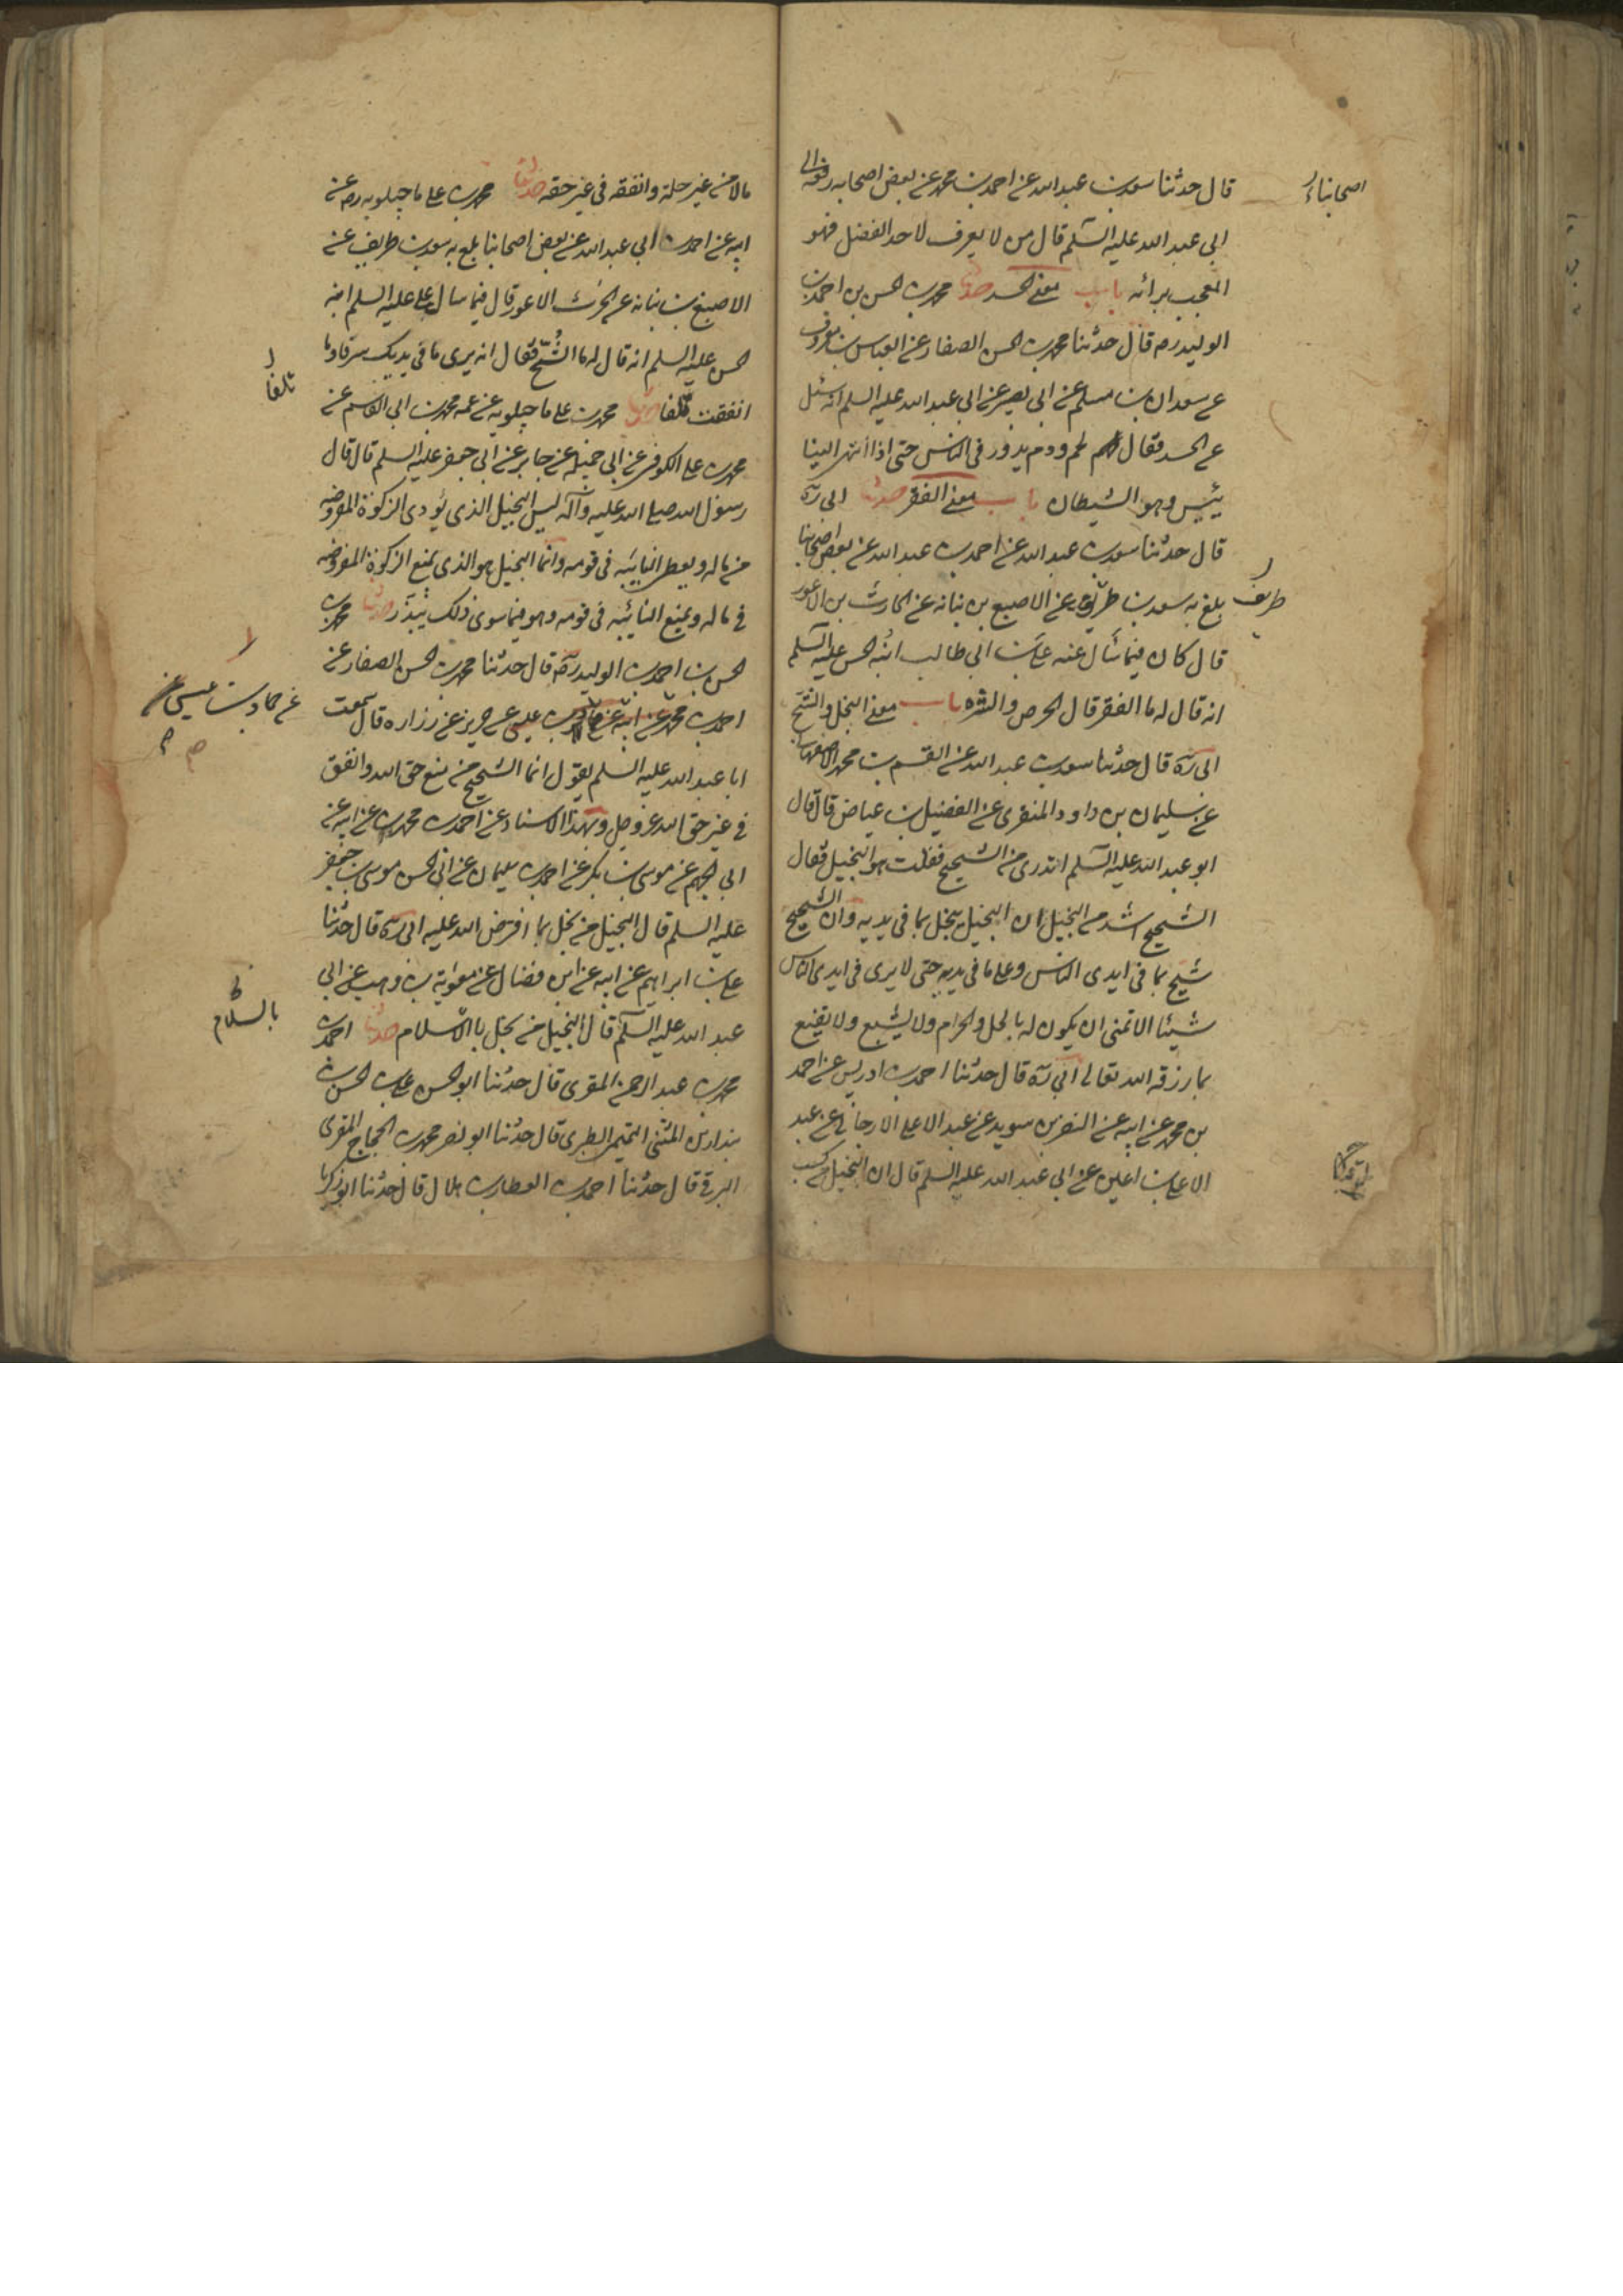 قال حدثنا سعد بن عبد الله عن احمد بن محمد عن بعض اصحابه رفعه الى
اصحابنا
ابى عبد الله عليه السلم قال من لا يعرف لاحد الفضل فهو
المعجب برائه باب معنى الحسد حدثنا محمد بن الحسن بن احمد بن
الوليد ره قال حدثنا محمد بن الحسن الصفار عن العباس بن معروف
عن سعدان بن مسلم عن ابى بصير عن ابى عبد الله عليه السلم انه سئل
عن الحسد فقال لحم ودم يدور فى الناس حتى اذا انتهى الينا
يئيس وهو الشيطان باب معنى الفقر حدثنا ابى ره
قال حدثنا سعد بن عبد الله عن احمد بن عبد الله عن بعض اصحابنا
بلغ به سعد بن طريق عن الاصبع بن نباته عن الحارث بن الاعور
طريف
قال كان فيما سأل عنه على بن ابى طالب ابنه الحسن عليه السلم
انه قال له ما الفقر قال الحرص والشره باب معنى البخل والشح
ابى ره قال حدثنا سعد بن عبد الله عن القسم بن محمد الاصفهانى
عن سليمان بن داود المنقرى عن الفضيل بن عياض قال قال
ابو عبد الله عليه السلم اتدرى من الشحيح فقلت هو البخيل فقال
الشحيح اشد من البخيل ان البخيل يبخل بما فى يديه وان الشحيح
شحيح بما فى ايدى الناس وعلى ما فى يديه حتى لا يرى فى ايدى الناس
شيئا الا تمنى ان يكون له بالحل والحرام ولا يشبع ولا يقنع
بما رزقه الله تعالى ابى ره قال حدثنا احمد بن ادريس عن احمد
بن محمد عن ابيه عن النضر بن سويد عن عبد الاعلى الارجانى عن عبد
الاعلى بن اعين عن ابى عبد الله عليه السلم قال ان البخيل من كسب
مالا من غير حله وانفقه فى غير حقه حدثنا محمد بن على ماجيلويه ره عن
ابيه عن احمد بن ابى عبد الله عن بعض اصحابنا بلغ به سعد بن طريف عن
الاصبغ بن نباته عن الحرث الاعور قال فيما سال على عليه السلم ابنه
الحسن عليه السلم انه قال له ما الشح فقال انه يرى ما فى يديك سرفا وما
انفقت تلفا حدثنا محمد بن على ماجيلويه عن عمه محمد بن ابى القاسم عن
تلفا
محمد بن على الكوفى عن ابى جميله عن جابر عن ابى جعفر عليه السلم قال قال
رسول الله صلى الله عليه وآله ليس البخيل الذى يؤدى الزكوة المفروضه
من ماله ويعطى النايئبه فى قومه وانما البخيل هو الذى يمنع الزكوة المفروضه
فى ماله ويمنع النايئبه فى قومه وهو فيما سوى ذلك يبذر حدثنا محمد بن
الحسن بن احمد بن الوليد ره قال حدثنا محمد بن الحسن الصفار عن
احمد بن محمد عن ابيه عن حماد بن عيسى عن حريز عن زراره قال سمعت
عن حماد بن عيسى عن
ابا عبد الله عليه السلم يقول انما الشحيح من منع حق الله وانفق
فى غير حق الله عز وجل وبهذا الاسناد عن احمد بن محمد عن ابيه عن
ابى الجهم عن موسى بن بكر عن احمد بن سليمان عن ابى الحسن موسى بن جعفر
عليه السلم قال البخيل من بخل بما افترض الله عليه ابى ره قال حدثنا
على بن ابراهيم عن ابيه عن ابن فضال عن معوية بن وهب عن ابى
عبد الله عليه السلم قال البخيل من بخل بالاسلام حدثنا احمد بن
بالسلام
محمد بن عبد الرحمن المقرى قال حدثنا ابو الحسن على بن الحسن بن
بندار بن المثنى التميمى الطبرى قال حدثنا ابو نصر محمد بن الحجاج المقرى
البرقى قال حدثنا احمد بن العطار بن هلال قال حدثنا ابو زكريا